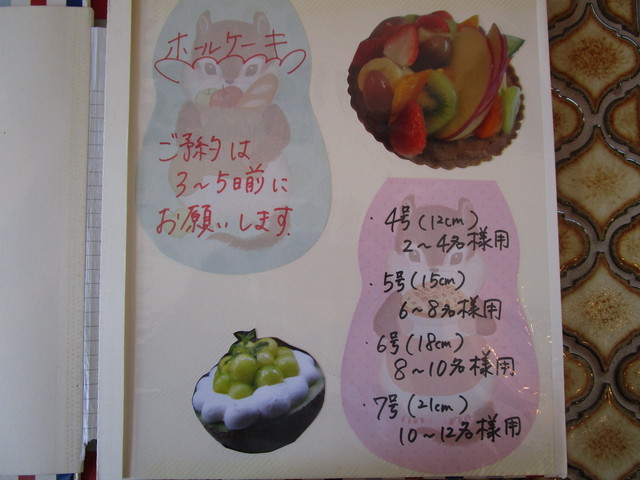 ホールケーキ
ご予約は
3～5日前に
お願いします.
・4号(12cm)
2～4名様用
・5号(15cm)
6～8名様用
・6号(18cm)
8～10名様用
・7号(21cm)
10～12名様用